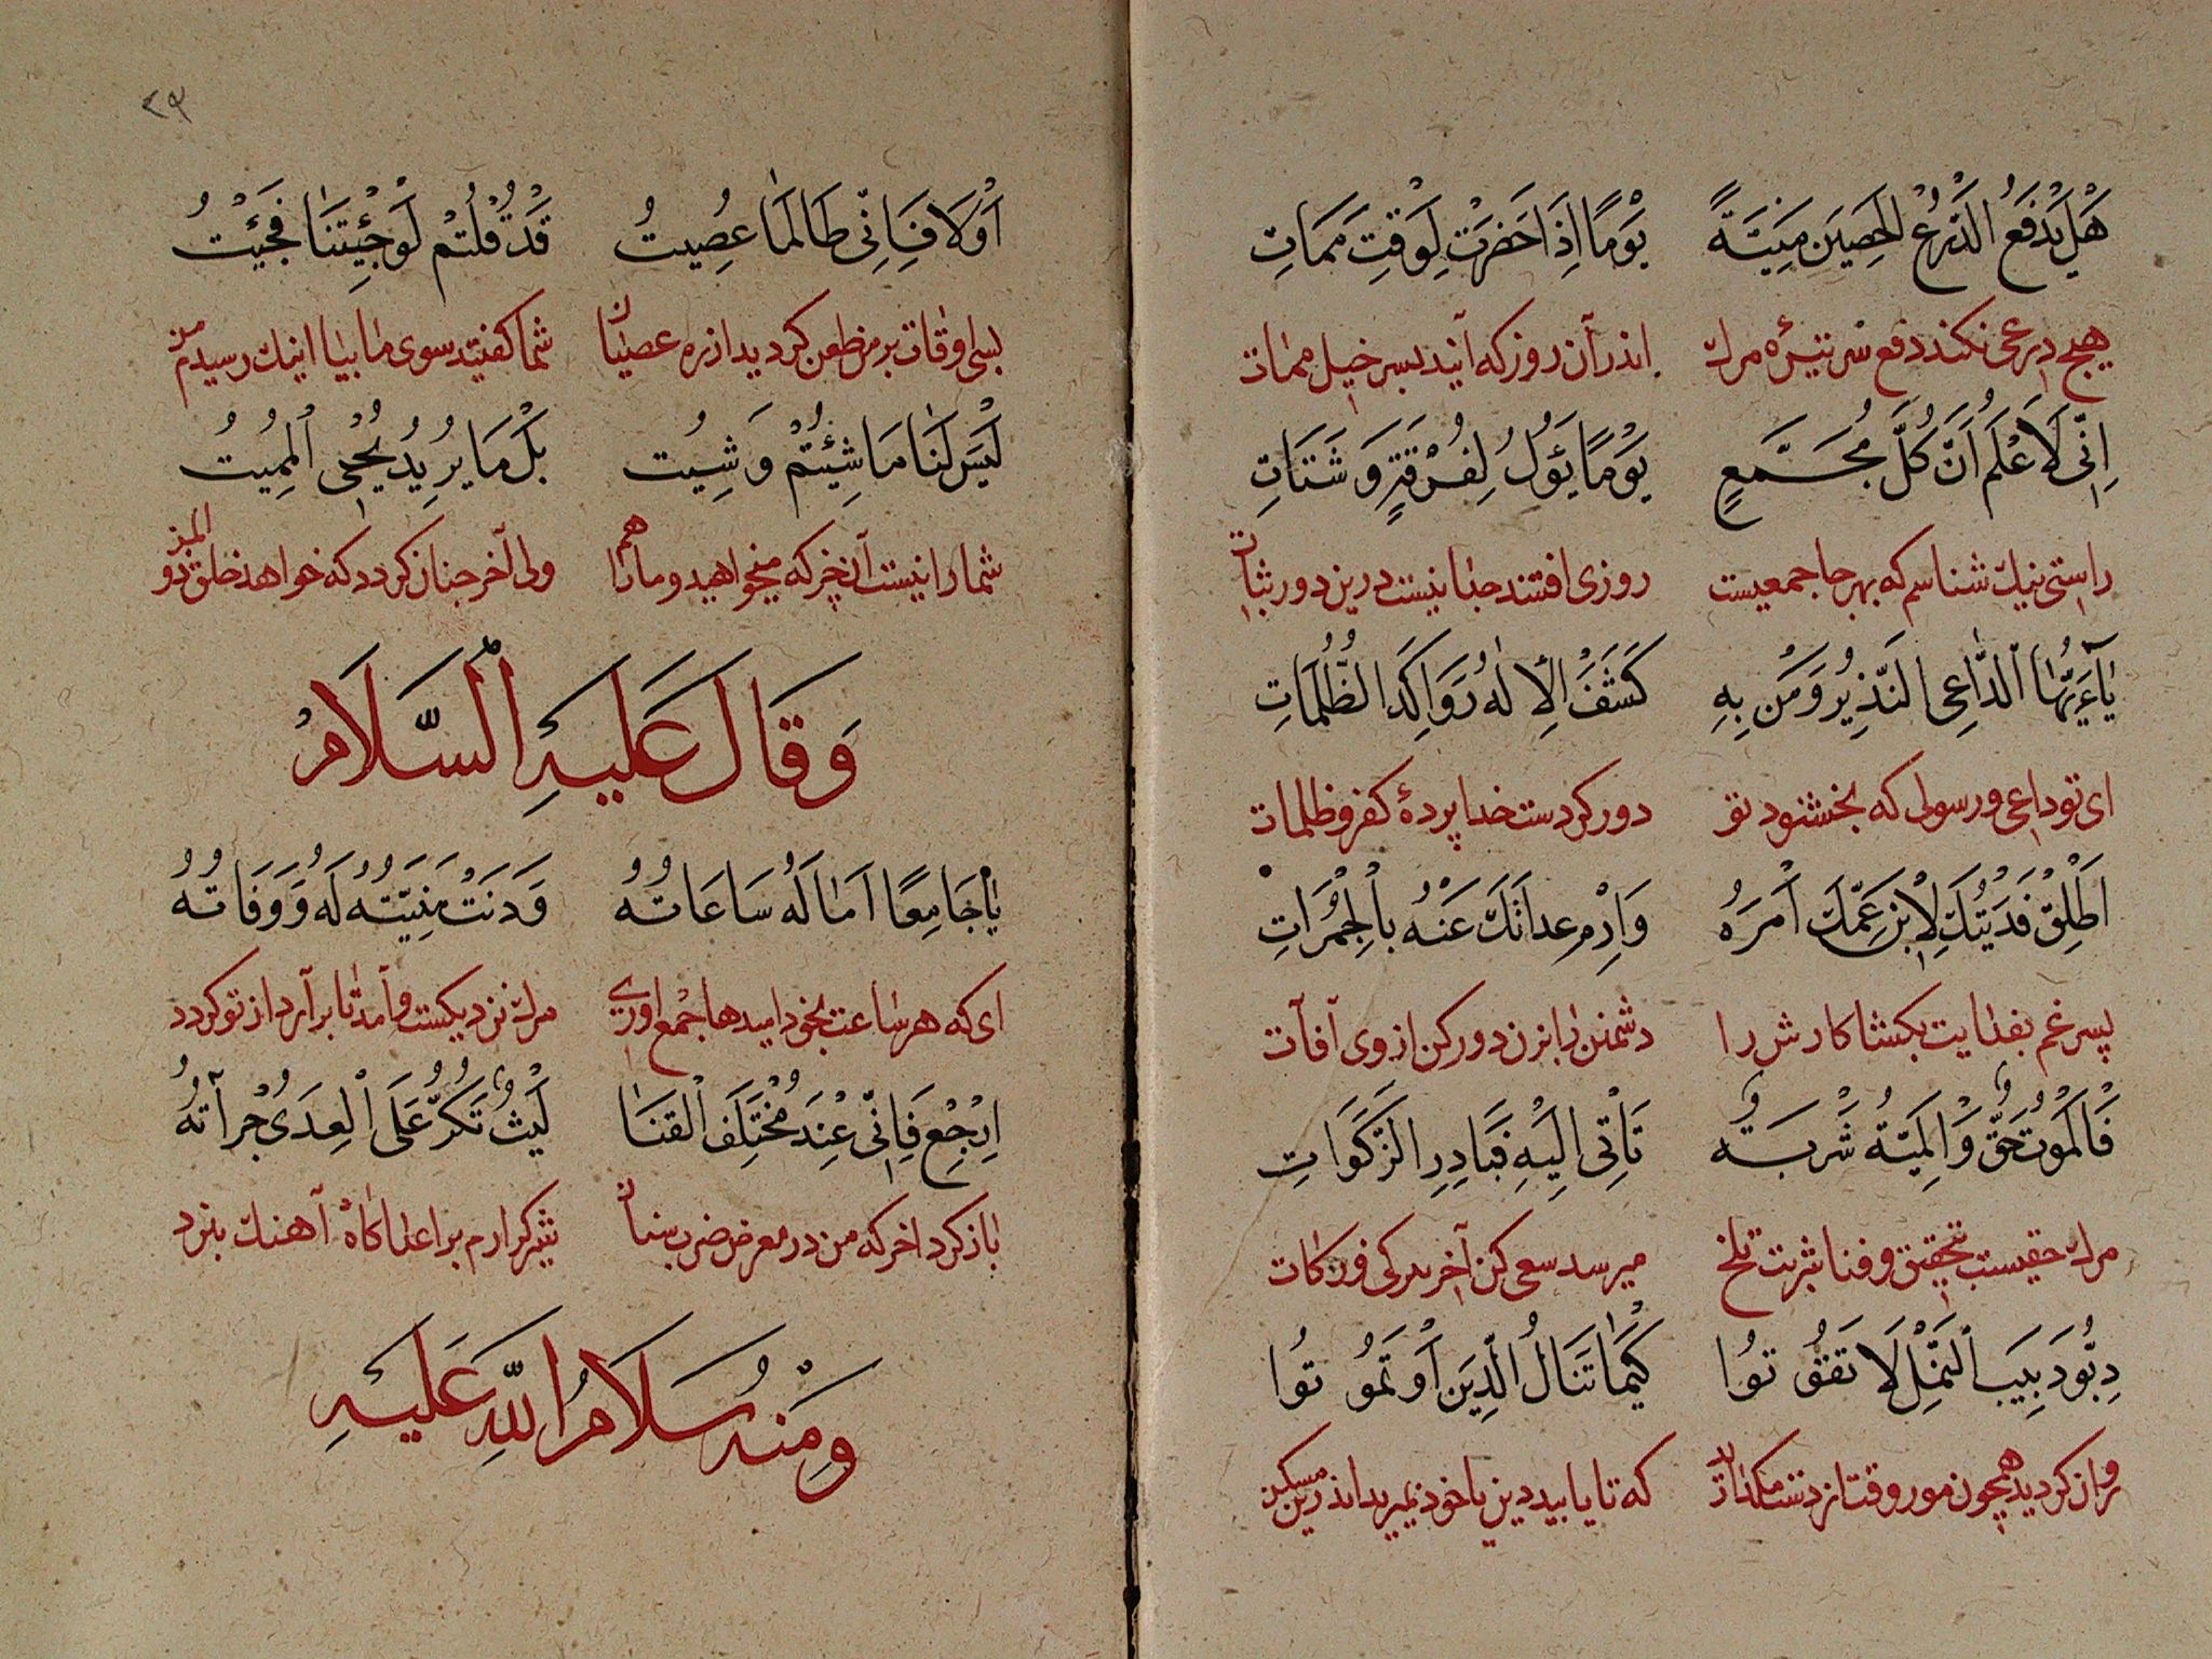 هَلْ يَدْفَعُ الدِّرْعُ الْحَصِينُ مَنِيَّةً يَوْمًا اِذَا حَضَرَتْ لِوَقْتِ مَمَاتِ
هیچ درعی نکند دفع سر تیره مرک اندر آن روز که آیند بسر خیل ممات
اِنّى لَاَعْلَمُ اَنَّ كُلَّ مُجَمَّعٍ يَوْمًا يَؤُلُ لِفُرْقَةٍ وَ شَتَاتِ
راستی نیک شناسم که بهر جا جمعیست روزی افتند جدا نیست درین دور ثبات
يٰاَيُّهَا الدَّاعِى النَّذِيرُ وَ مَنْ بِهِ كَشَفَ الْاِلٰهُ رَوَاكِدَ الظُّلُمَاتِ
ای تو داعی و رسولی که بخشنود تو دور کردست خدا پردهٔ کفر و ظلمات
اَطْلِقْ فَدَيْتُكَ لِابْنِ عَمِّكَ اَمْرَهُ وَ اَرْمِ عداتَكَ عَنْهُ بِالْجُمُرَاتِ
پسر عم بفدایت بکشا کارش را دشمنان را بزن دور کن از وی آفات
فَالْمَوْتُ حَقٌّ وَالْمَنِيَّةُ شَرْبَةٌ تَأْتِى اِلَيْهِ فَبَادِرِ الزَّكَوَاتِ
مرک حقیست بتحقیق و فنا شربت تلخ میرسد سعی کن آخر کی فرزکات
دِبُّوا دَبِيبَ النَّمْلِ لَا تَفُوتُوا كَيْمَا تَنَالُ الدِّينَ اَوْ تَمُوتُوا
روان کردید همچون مور وقت از دست مکذارید که تا یابید دین یا خود بمیرید اندرین مسکن
٢٩
اَوْ لَا فَاِنّى طَالَمَا عُصِيتُ قَدْ قُلْتُمْ لَوْ جِئْتَنَا فَجِيْتُ
بسی اوقات بر من طعن کردید از ره عصیان شما کفتید سوی ما بیا اینک رسیدم من
لَيْسَ لَنَا مَا شِئْتُمْ وَ شِيتُ بَلْ مَا يُرِيدُ يُحْيِى الْمُمِيتُ
شما را نیست آن چیز که میخواهید و ما را هم ولی آخر جنان کردد که خواهد خالق ذو المن
وَ قَالَ عَلَيْهِ السَّلَامُ
يَا جَامِعًا آمَالَهُ سَاعَاتُهُ وَ دَنَتْ مَنِيَّتُهُ لَهُ وَ وَفَاتُهُ
ای که هر ساعت بخود امیدها جمع اوری مرک نزدیکست و آمد تا برآرد از تو کرد
اِرْجِعْ فَاِنّى عِنْدَ مُخْتَلَفِ الْقَنَا لَيْثٌ تَكُرُّ عَلَى الْعِدَى جُرْآتُهُ
باز کرد اخر که من در معرض ضرب سنان شیر کرارم بر اعدا کاه آهنک نبرد
وَ مِنْهُ سَلَامُ اللهِ عَلَيْهِ